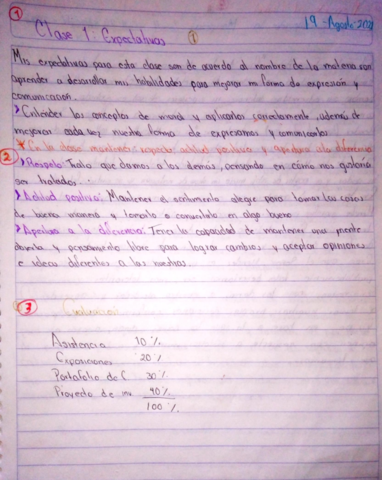 1
19-Agosto-202
Clase 1: Expectativas 1
Mis expectativas para esta clase son de acuerdo al nombre de la materia son
aprender a desarrollar mis habilidades para mejorar mi forma de expresión y
comunicación.
> Entender los conceptos de manera y aplicarlos correctamente, además de
mejorar cada vez nuestra forma de expresarnos y comunicarlos
* En la clase mantener: respeto, actitud positiva y apertura a la diferencia
2 > Respeto: Trato que damos a los demás, pensando en cómo nos gustaría
ser tratados.
> Actitud positiva: Mantener el sentimiento alegre para tomar las cosas
de buena manera y tomarlo o convertirlo en algo bueno
> Apertura a la diferencia: Tener la capacidad de mantener una mente
abierta y pensamiento libre para lograr cambios y aceptar opiniones
e ideas diferentes a las nuestras.
3 Evaluación
Asistencia 10%
Exposiciones 20%
Portafolio de 30%
Proyecto de 40%
100%